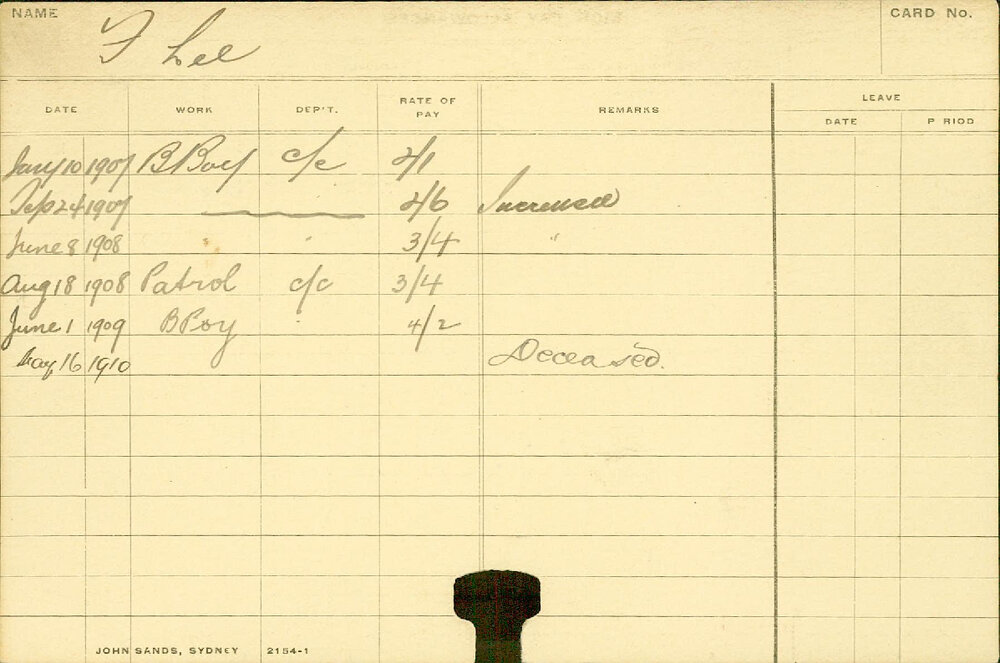 NAME F Lee CARD No.
DATE WORK DEP'T. RATE OF PAY REMARKS LEAVE
DATE P RIOD
Jany 10 1907 B Boy c/c 2/1
Sep 24 1907 2/6 Increased
June 8 1908 " " 3/4 "
Aug 18 1908 Patrol c/c 3/4
June 1 1909 B Boy " 4/2
May 16 1910 Deceased.
JOHN SANDS, SYDNEY 2154-1